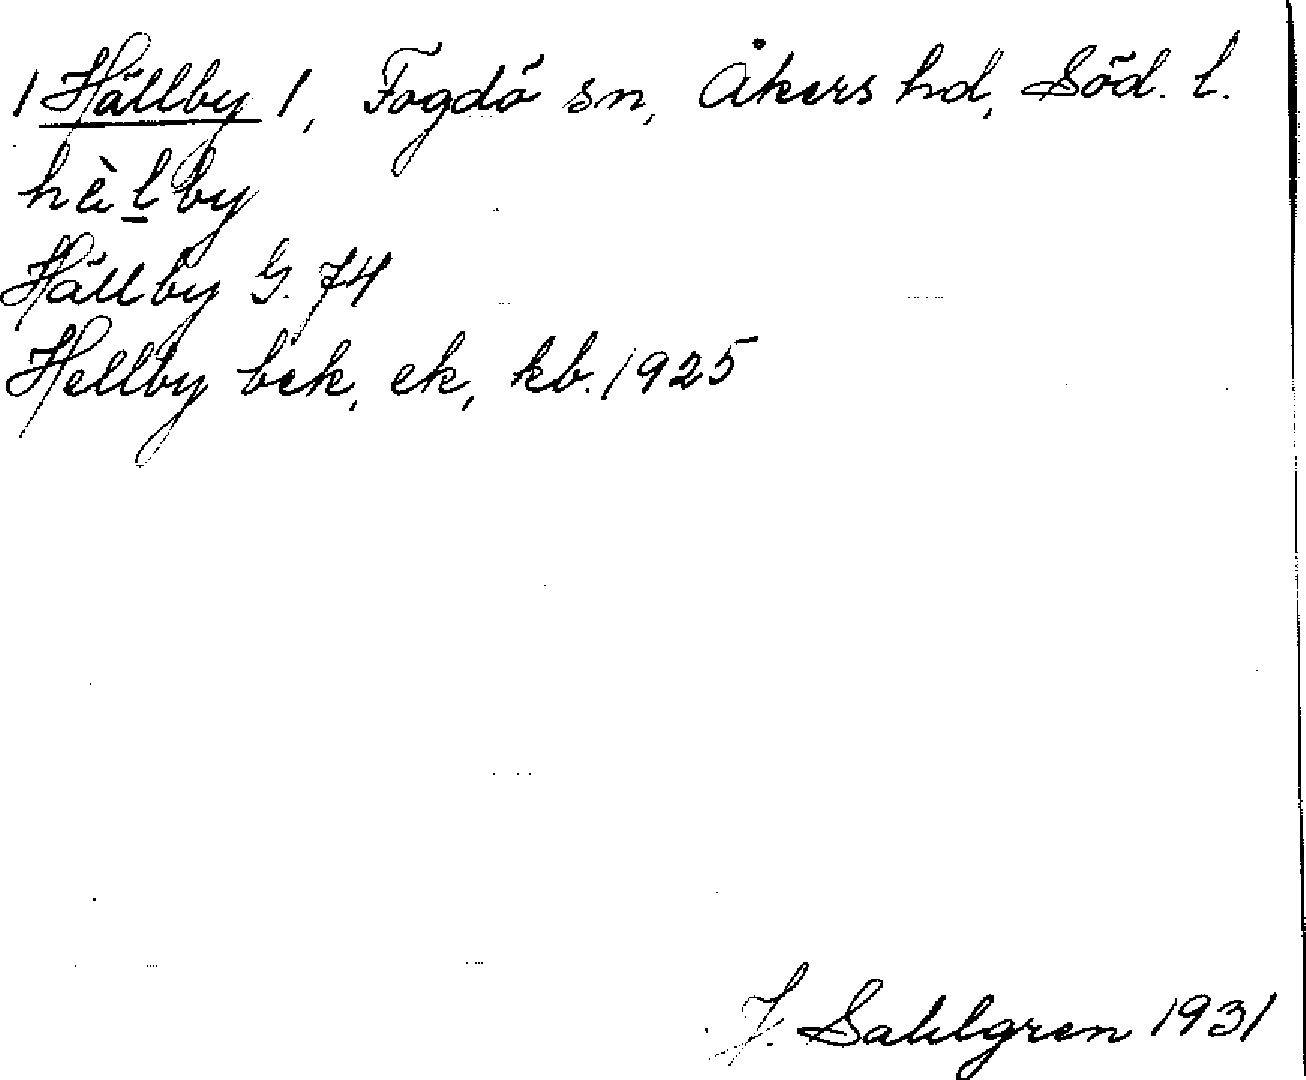 / Hällby /, Fogdö sn, Åkers hd, Söd. l.
hὲlby
Hällby G. 74
Hellby bek, ek, kb. 1925
J. Sahlgren 1931